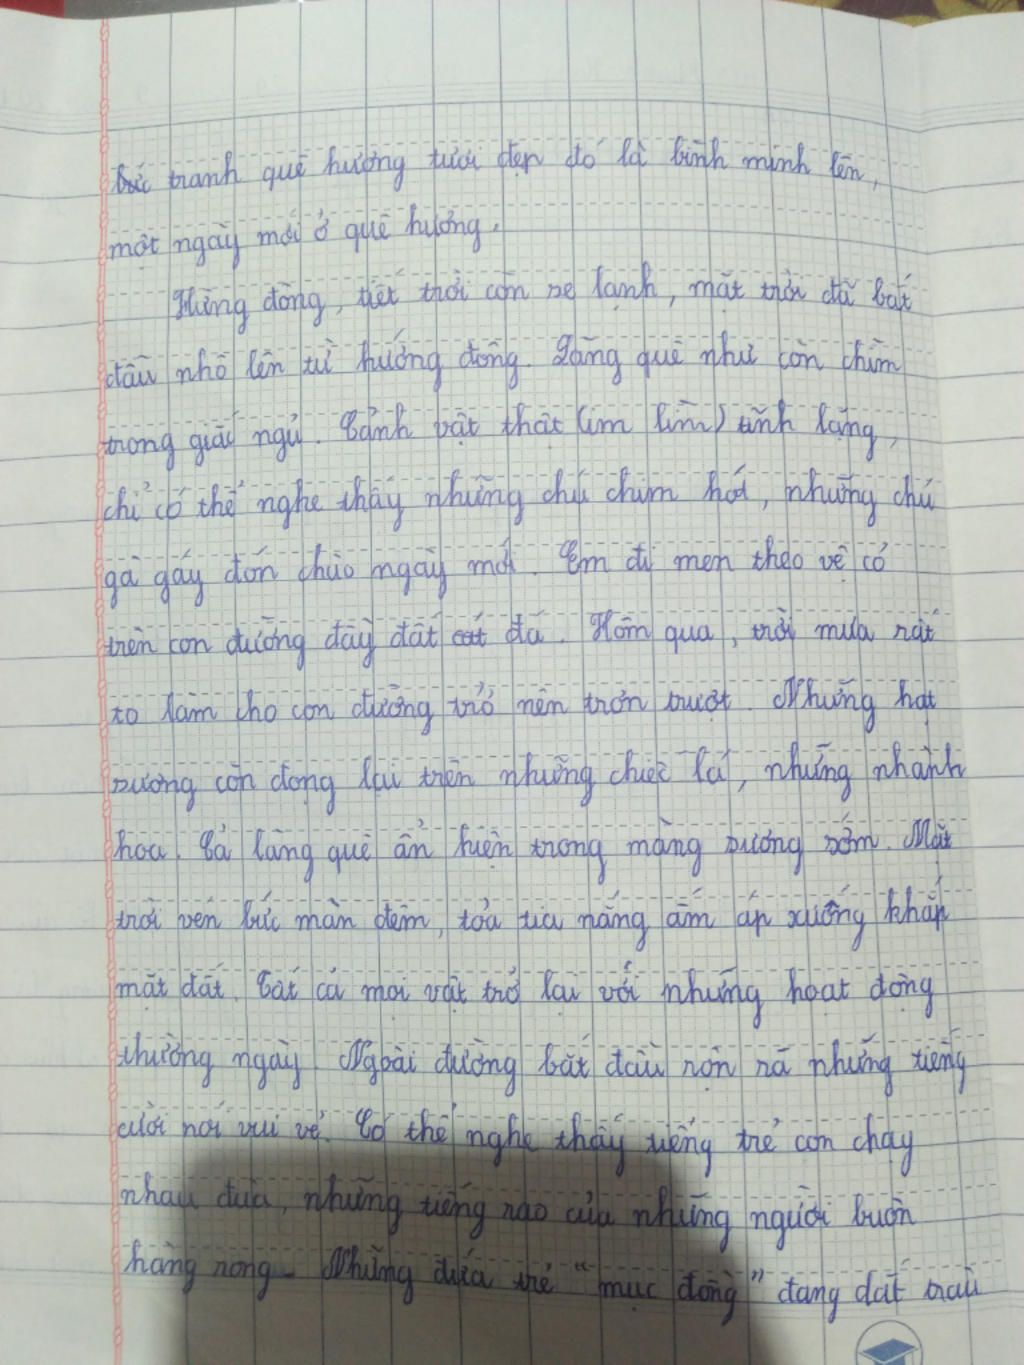 bức tranh quê hương tươi đẹp đó là bình minh lên,
một ngày mới ở quê hương.
Hừng đông, tiết trời còn se lạnh, mặt trời đã bắt
đầu nhô lên từ hướng đông. Làng quê như còn chìm
trong giấc ngủ. Cảnh vật thật (im lìm) tĩnh lặng,
chỉ có thể nghe thấy những chú chim hót, những chú
gà gáy đón chào ngày mới. Em đi men theo vệ cỏ
trên con đường đầy đất cát đá. Hôm qua, trời mưa rất
to làm cho con đường trở nên trơn trượt. Những hạt
sương còn đọng lại trên những chiếc lá, những nhành
hoa. Cả làng quê ẩn hiện trong màng sương sớm. Mặt
trời vén bức màn đêm, tỏa tia nắng ấm áp xuống khắp
mặt đất. Tất cả mọi vật trở lại với những hoạt động
thường ngày. Ngoài đường bắt đầu rộn rã những tiếng
cười nói vui vẻ. Có thể nghe thấy tiếng trẻ con chạy
nhau đùa, những tiếng rao của những người buôn
hàng rong. Những đứa trẻ "mục đồng" đang dắt trâu